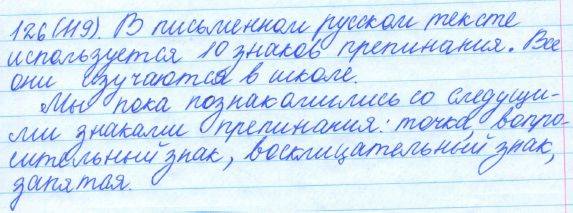 126(119). В письменном русском тексте
используется 10 знаков препинания. Все
они изучаются в школе.
Мы пока познакомились со следущи-
ми знаками препинания: точка, вопро-
сительный знак, восклицательный знак,
запятая.